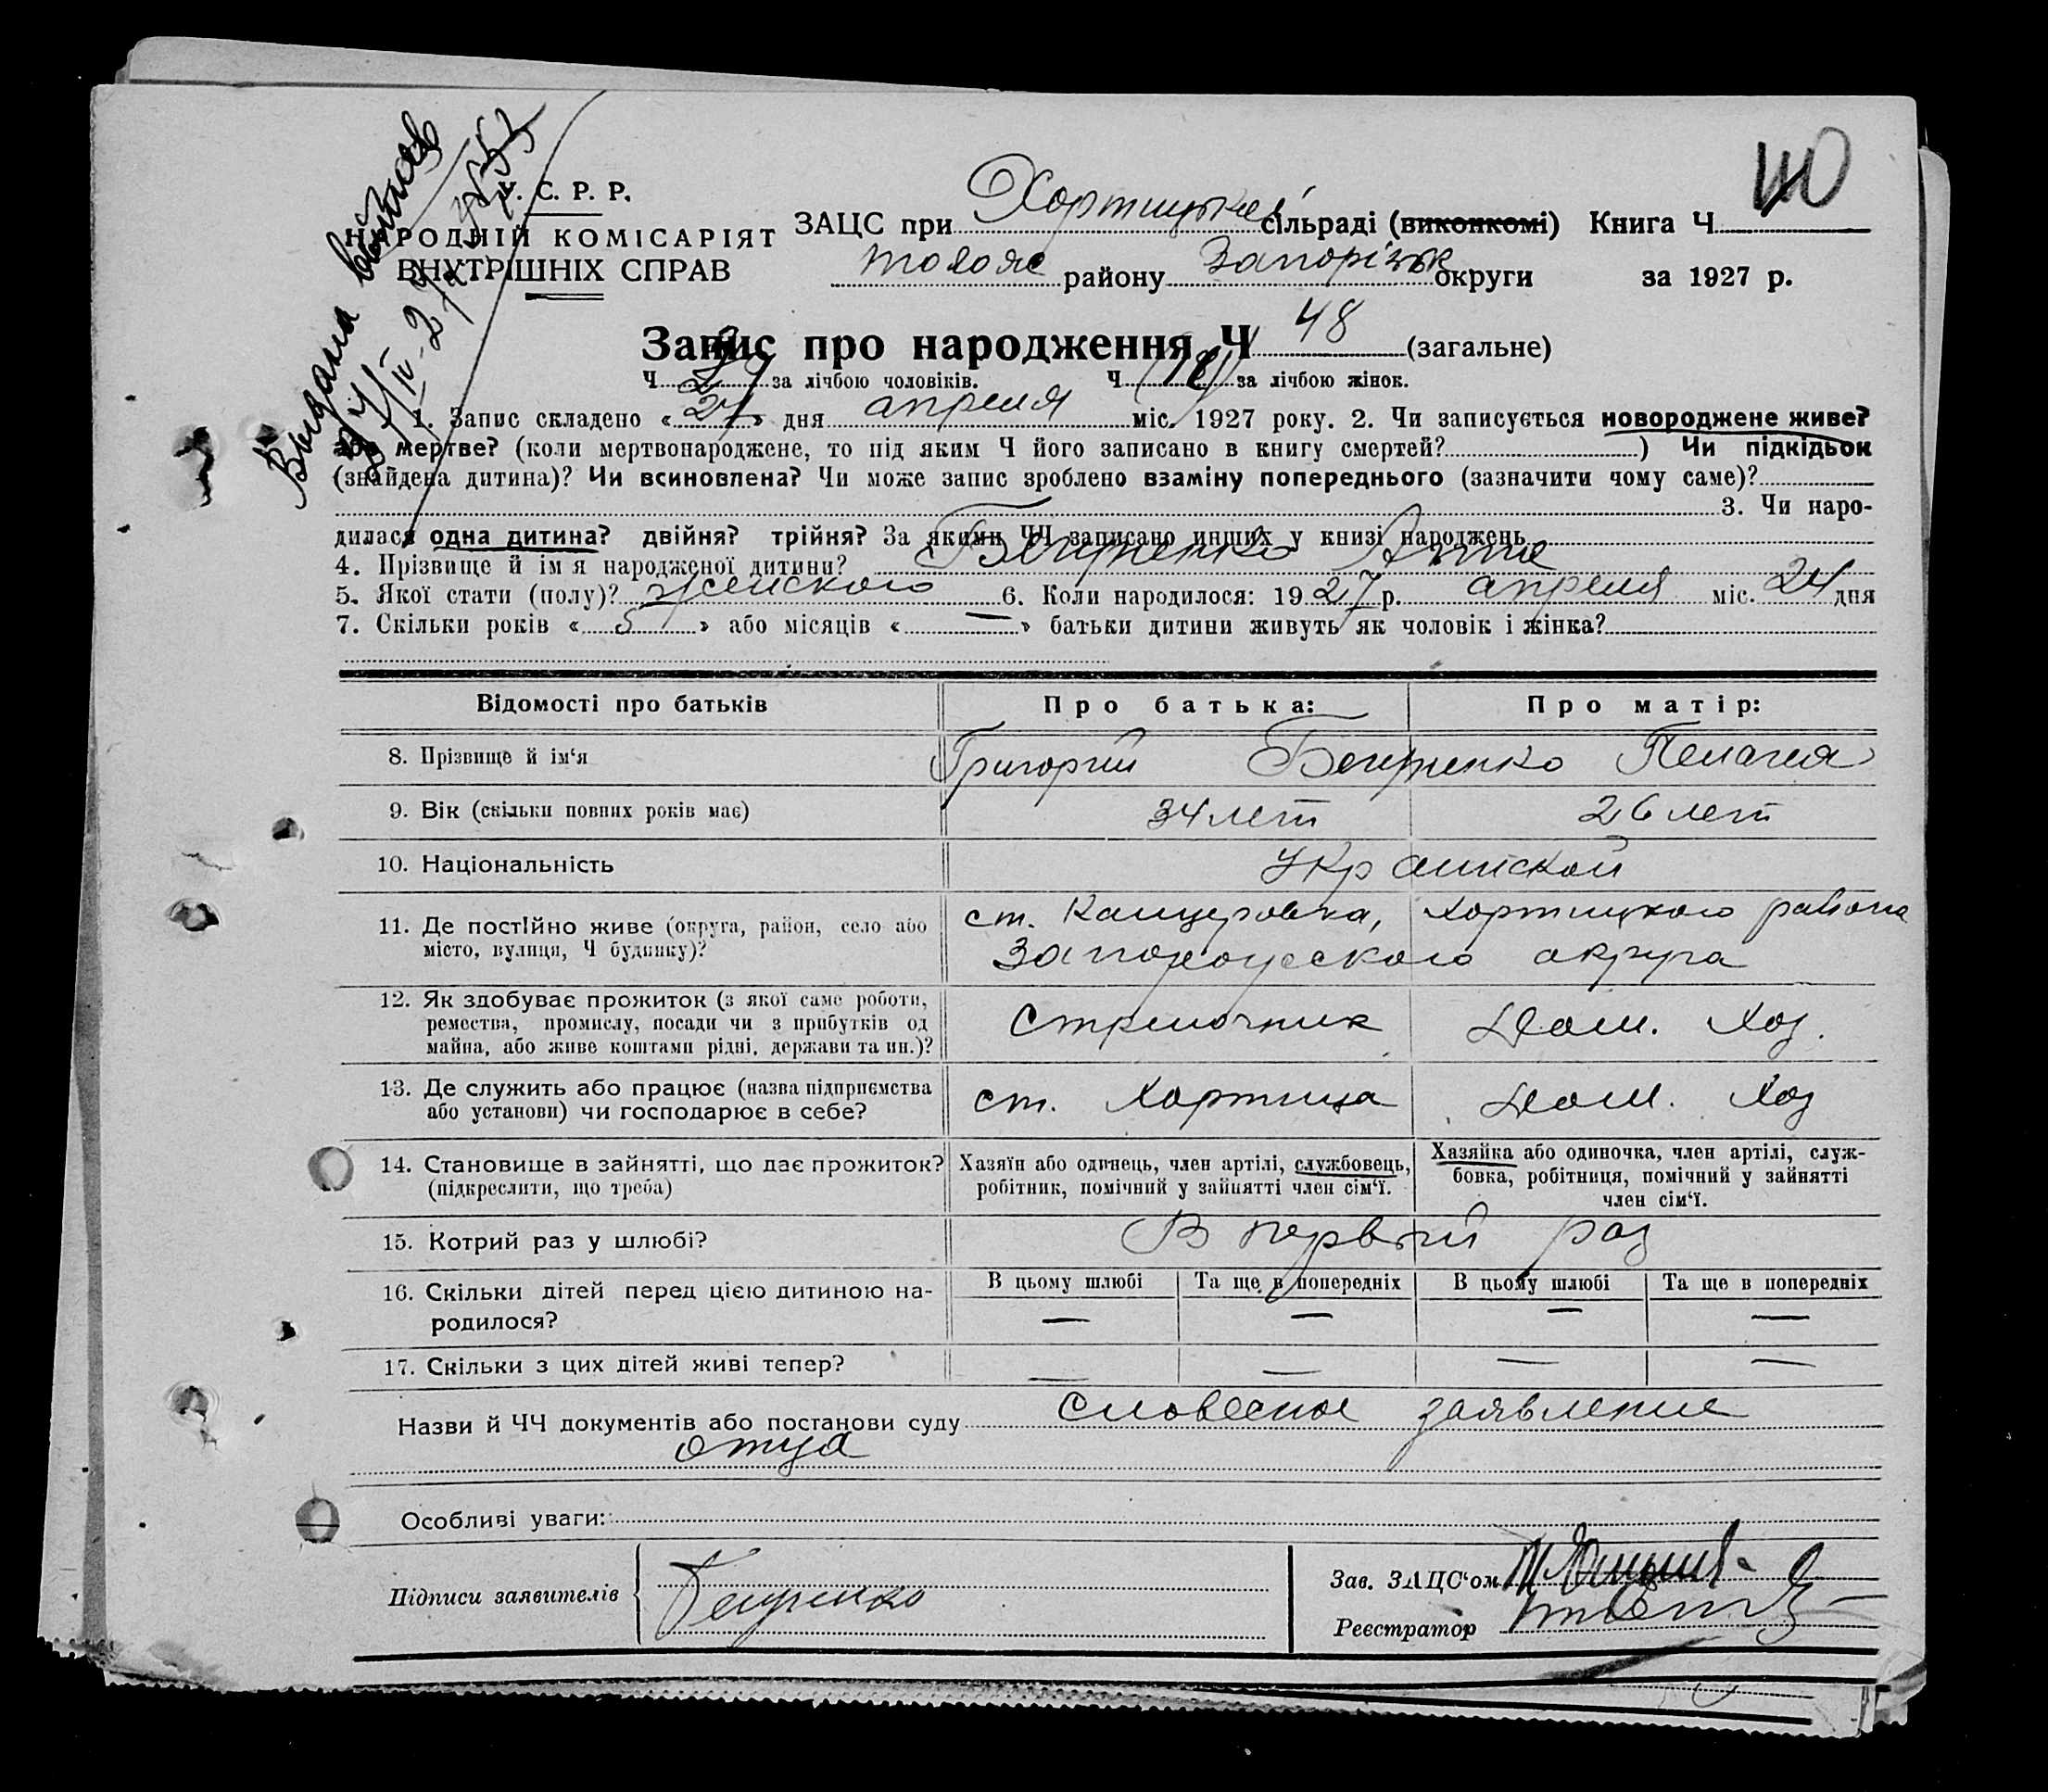 Видана выпись
40
У. С. Р. Р.
НАРОДНІЙ КОМІСАРІЯТ
ВНУТРІШНІХ СПРАВ
ЗАЦС при Хортицькій сільраді (виконкомі) Книга Ч
того ж району Запорізьк округи за 1927 р.
Запис про народження Ч 48 (загальне)
Ч за лічбою чоловіків. Ч за лічбою жінок.
1. Запис складено « 27 » дня апреля міс. 1927 року. 2. Чи записується новороджене живе?
або мертве? (коли мертвонароджене, то під яким Ч його записано в книгу смертей? ) Чи підкідьок
(знайдена дитина)? Чи всиновлена? Чи може запис зроблено взаміну попереднього (зазначити чому саме)?
3. Чи наро-
дилася одна дитина? двійня? трійня? За якими ЧЧ записано инших у книзі народжень
4. Прізвище й ім'я народженої дитини? Анна
5. Якої стати (полу)? женского 6. Коли народилося: 1927 р. апреля міс. 24 дня
7. Скільки років « 5 » або місяців « — » батьки дитини живуть як чоловік і жінка?
Відомості про батьків Про батька: Про матір:
8. Прізвище й ім'я Григорий Пелагея
9. Вік (скільки повних років має) 34 лет 26 лет
10. Національність Украинской
11. Де постійно живе (округа, район, село або ст. Канцеровка, Хортицкого района
місто, вулиця, Ч будинку)? Запорожского округа
12. Як здобуває прожиток (з якої саме роботи,
ремества, промислу, посади чи з прибутків од Стрелочник Дом. Хоз.
майна, або живе коштами рідні, держави та ин.)?
13. Де служить або працює (назва підприємства ст. Хортица Дом. Хоз
або установи) чи господарює в себе?
14. Становище в зайнятті, що дає прожиток? Хазяїн або одинець, член артілі, службовець, Хазяйка або одиночка, член артілі, служ-
(підкреслити, що треба) робітник, помічний у зайнятті член сім'ї. бовка, робітниця, помічний у зайнятті
член сім'ї.
15. Котрий раз у шлюбі? В первый раз
В цьому шлюбі Та ще в попередніх В цьому шлюбі Та ще в попередніх
16. Скільки дітей перед цією дитиною на-
родилося? — — — —
17. Скільки з цих дітей живі тепер? — — — —
Назви й ЧЧ документів або постанови суду словесное заявление
отца
Особливі уваги:
Підписи заявителів
Зав. ЗАЦС'ом
Реєстратор